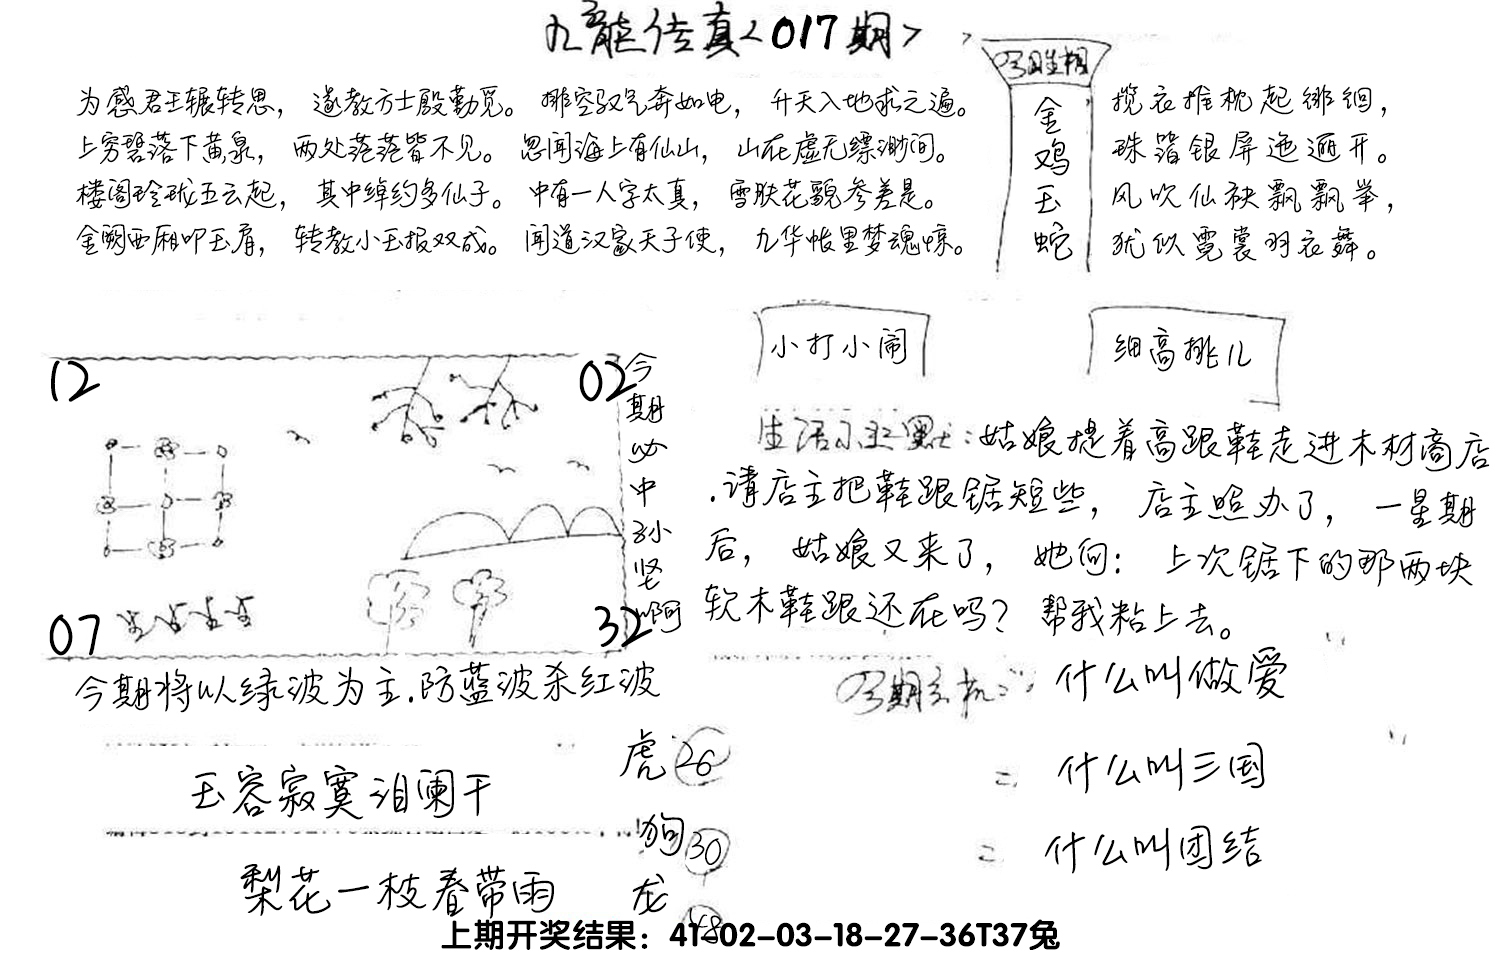 九龙传真<017期>
今期生相
金
鸡
玉
蛇
为感君王辗转思，遂教方士殷勤觅。排空驭气奔如电，升天入地求之遍。
上穷碧落下黄泉，两处茫茫皆不见。忽闻海上有仙山，山在虚无缥渺间。
楼阁玲珑五云起，其中绰约多仙子。中有一人字太真，雪肤花貌参差是。
金阙西厢叩玉扃，转教小玉报双成。闻道汉家天子使，九华帐里梦魂惊。
揽衣推枕起徘徊，
珠箔银屏迤逦开。
风吹仙袂飘飘举，
犹似霓裳羽衣舞。
小打小闹
细高挑儿
12
02
07
32
今期必中孙坚啊
生活小幽默：姑娘提着高跟鞋走进木材商店
.请店主把鞋跟锯短些，店主照办了，一星期
后，姑娘又来了，她问：上次锯下的那两块
软木鞋跟还在吗？帮我粘上去。
今期将以绿波为主.防蓝波杀红波
今期玄机：什么叫做爱
二 什么叫三国
二 什么叫团结
玉容寂寞泪阑干
梨花一枝春带雨
虎 26
狗 30
龙 48
上期开奖结果：41-02-03-18-27-36T37兔